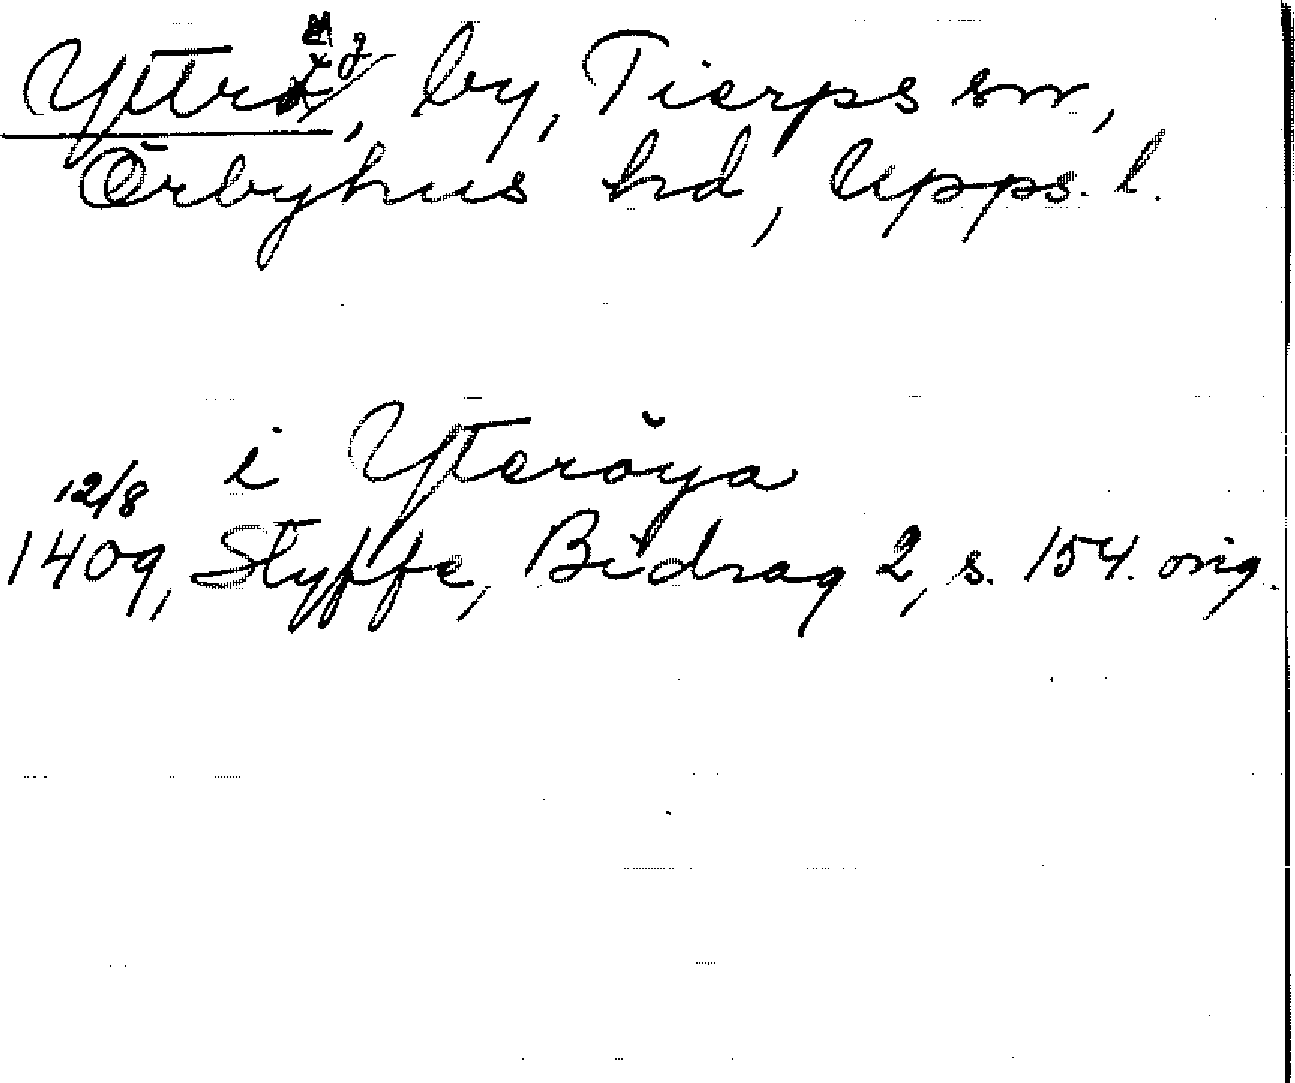 Yttrö, by, Tierps sn,
Örbyhus hd, Upps. l.
i Yterøya
12/8
1409, Styffe, Bidrag 2, s. 154. orig.